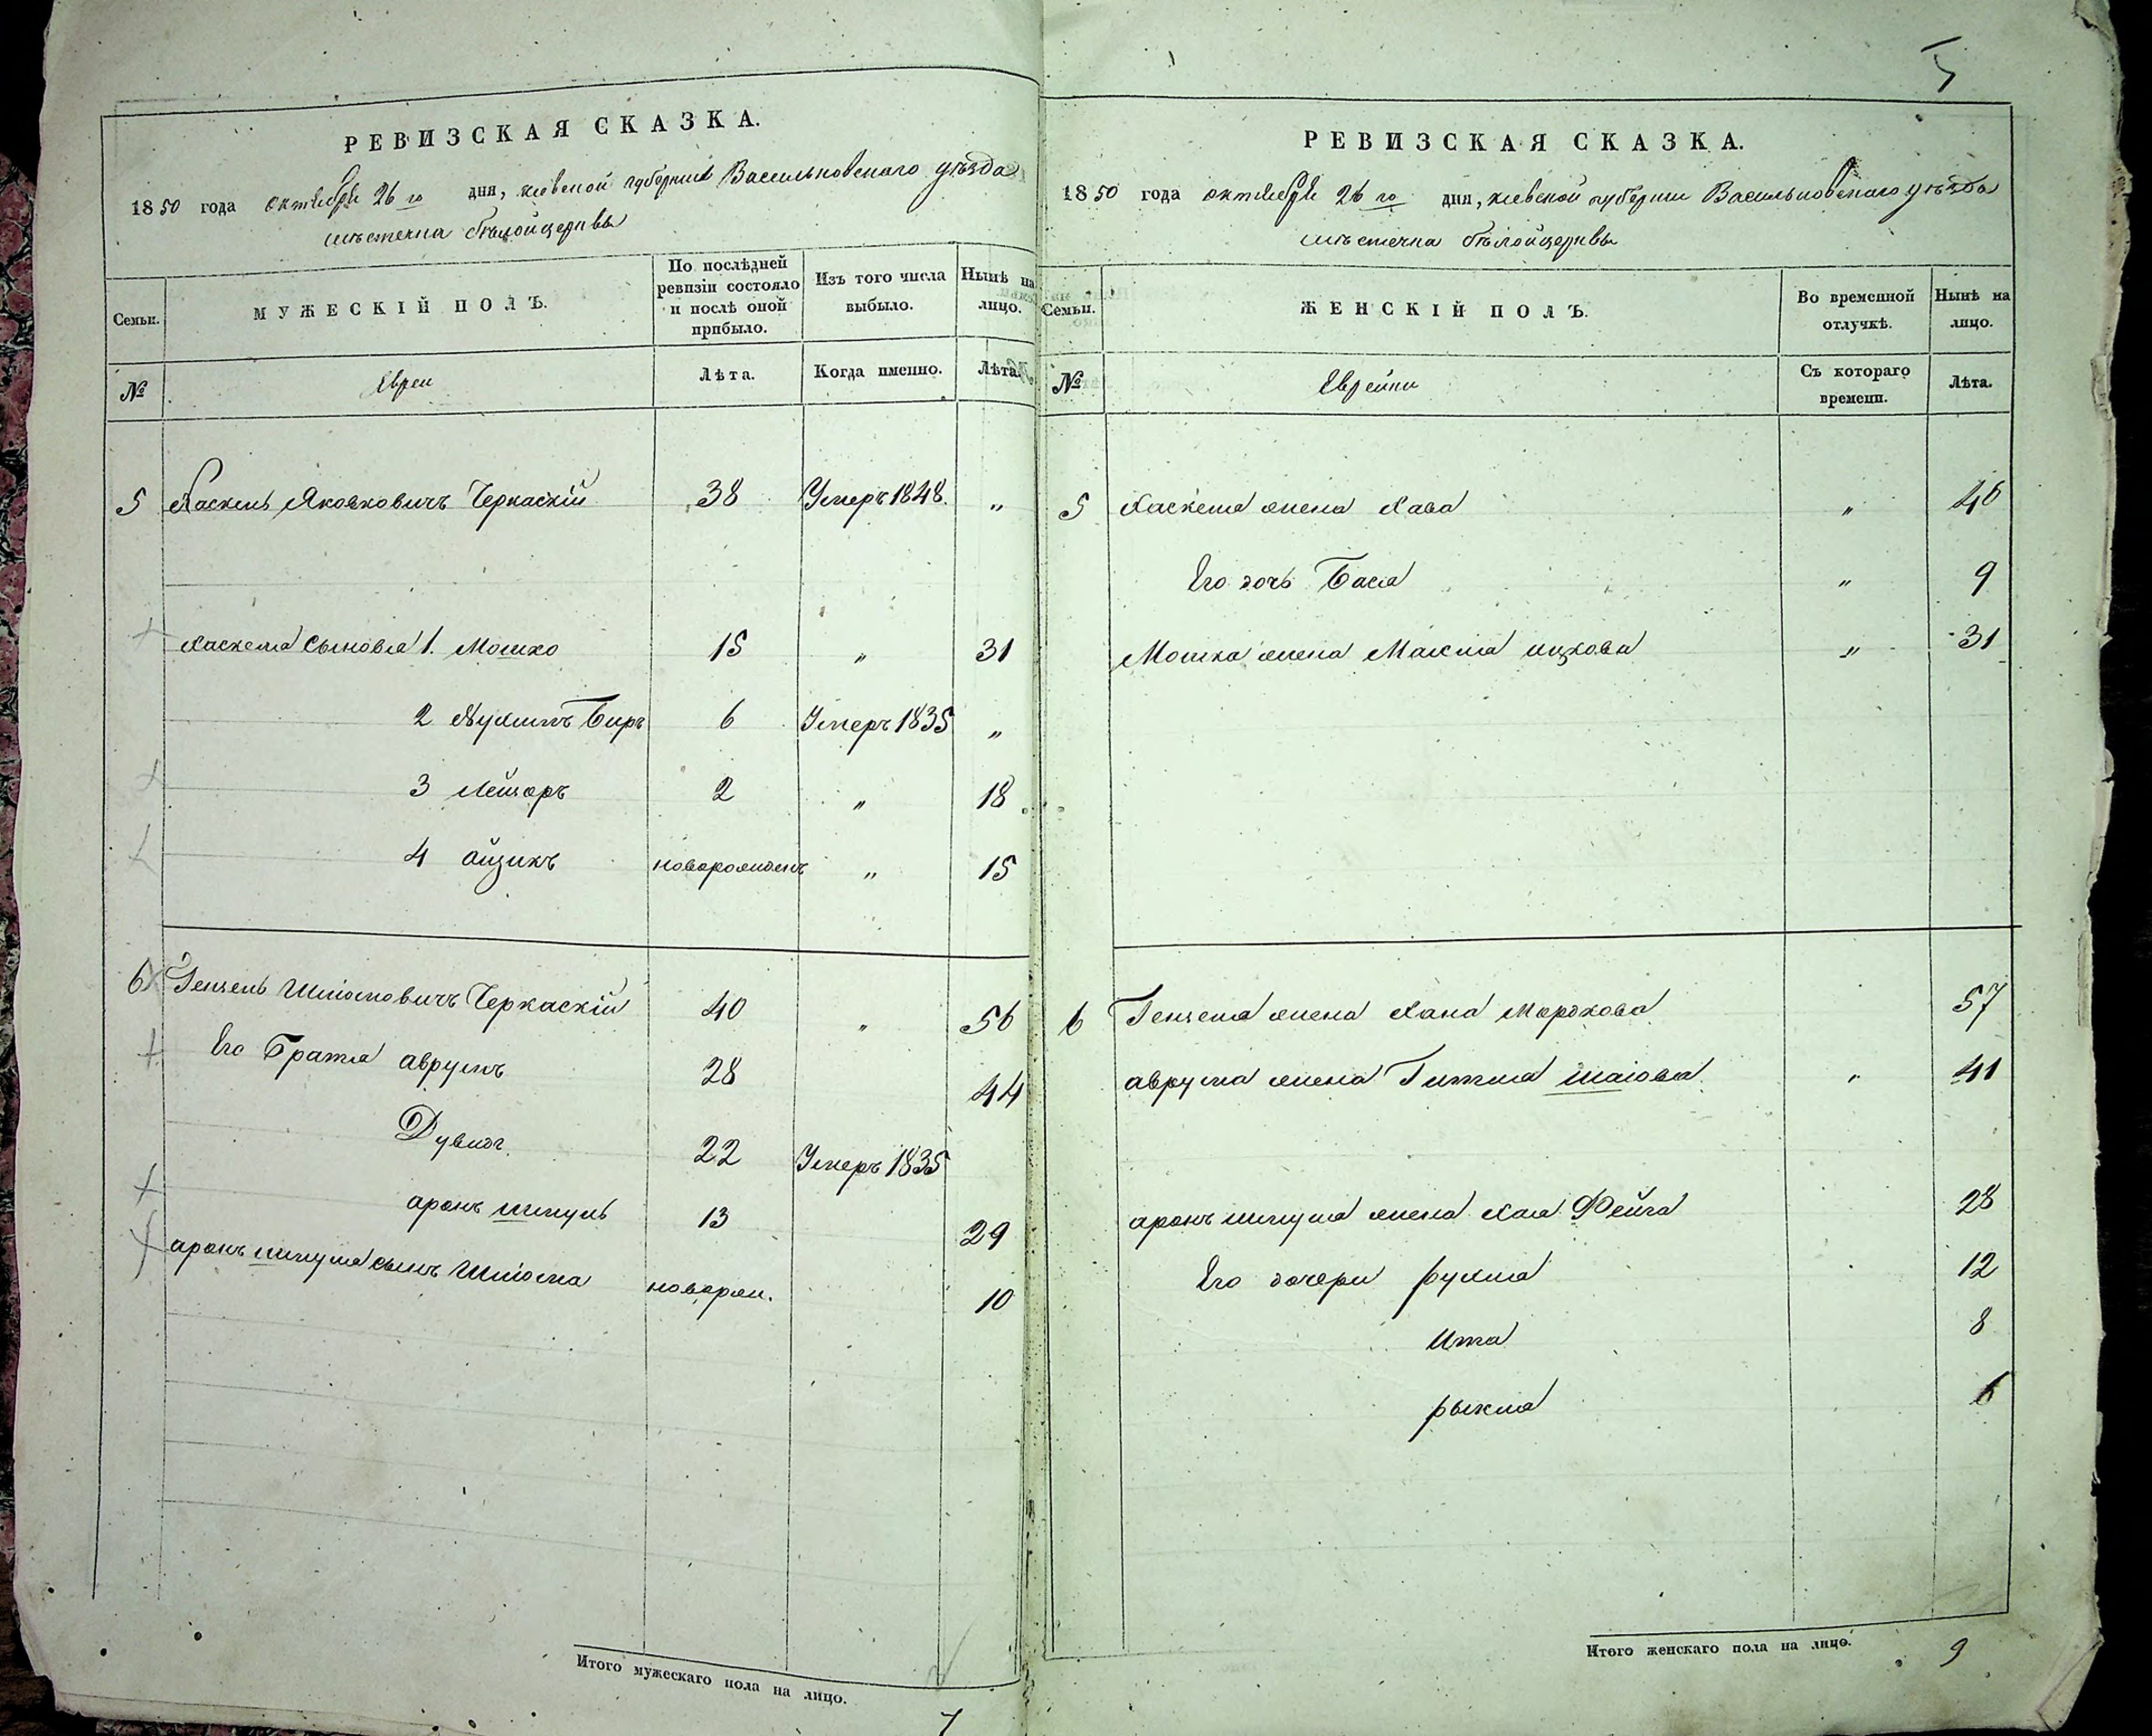 РЕВИЗСКАЯ СКАЗКА.
1850 года октября 26 го дня, киевской губернии Васильковского уѣзда
мѣстечка бѣлойцеркви
Семьи. МУЖЕСКІЙ ПОЛЪ. По послѣдней ревизіи состояло и послѣ оной прибыло. Изъ того числа выбыло. Нынѣ на лицо.
№ Евреи Лѣта. Когда именно. Лѣта.
5 Хаскель Яковковичъ Черкаскій 38 Умеръ 1848. „
Хаскеля Сыновья 1. Мошко 15 „ 31
2 Биръ 6 Умеръ 1835 „
3 Лейзоръ 2 „ 18
4 айзикъ новорожденъ „ 15
6 Гензель Шліомовичъ Черкаскій 40 „ 56
Его Братья аврумъ 28 44
Дувидъ 22 Умеръ 1835
аронъ шмуль 13 29
аронъ шмуля сынъ Шліома новорож. 10
Итого мужескаго пола на лицо.
7
5
РЕВИЗСКАЯ СКАЗКА.
1850 года октября 26 го дня, киевской губернии Васильковского уѣзда
мѣстечка бѣлойцеркви
Семьи. ЖЕНСКІЙ ПОЛЪ. Во временной отлучкѣ. Нынѣ на лицо.
№ Еврейки Съ котораго времени. Лѣта.
5 Хаскеля жена Хава „ 46
Его дочь Бася „ 9
Мошка жена Малка ицкова „ 31
6 Гензеля жена Хана Мордкова 57
аврума жена Гитля шаіова „ 41
аронъ шмуля жена Хая Фейга 28
Его дочери рухля 12
Ита 8
рыкля 6
Итого женскаго пола на лицо. 9